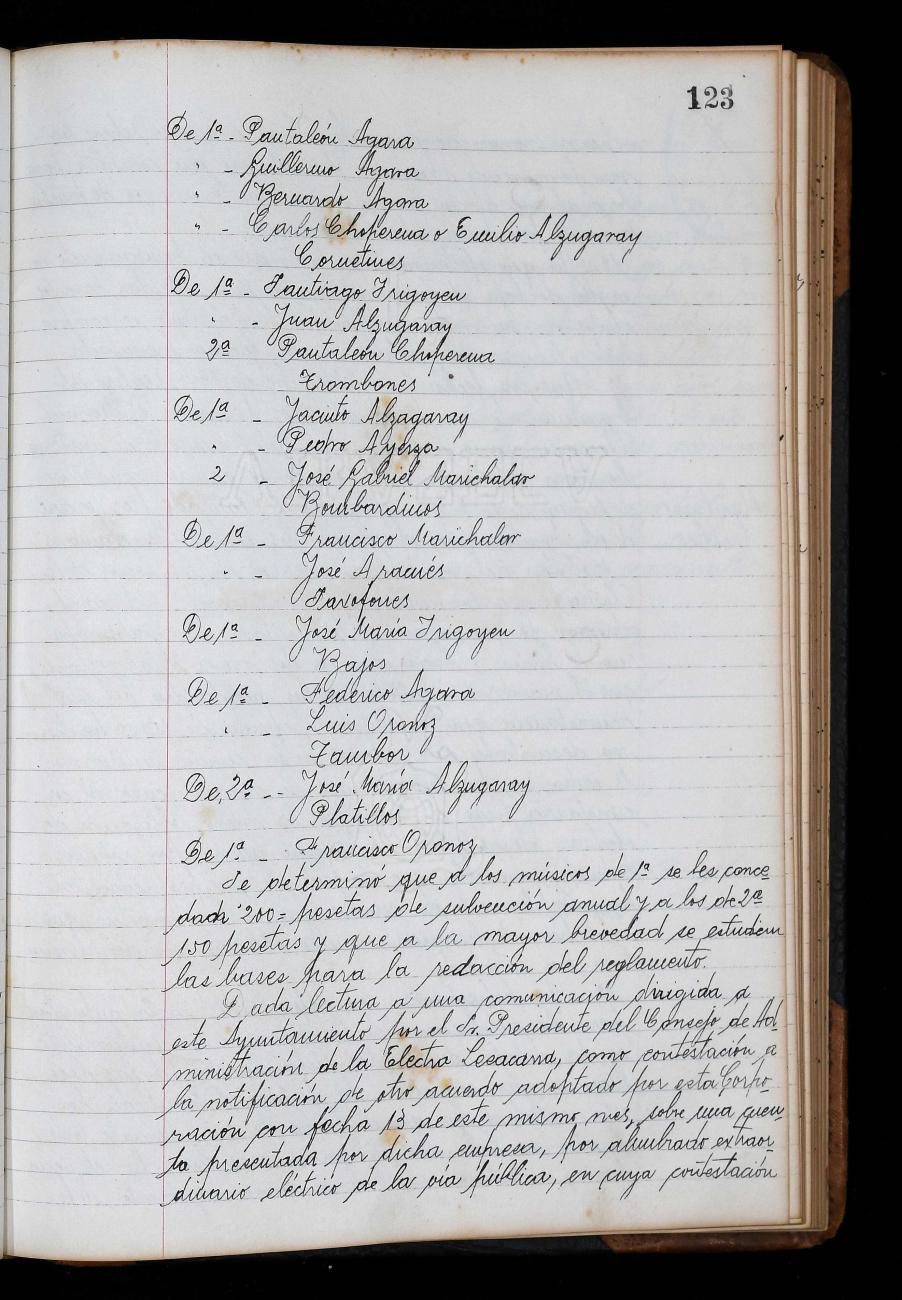 123
De 1ª - Pantaleón Agara
" - Guillermo Agara
" - Bernardo Agara
" - Carlos Choperena o Emilio Alzugaray
Cornetines
De 1ª - Santiago Irigoyen
" - Juan Alzugaray
2ª Pantaleón Choperena
Trombones
De 1ª - Jacinto Alzagaray
" - Pedro Ayerza
2 - José Gabriel Marichalar
Bombardinos
De 1ª - Francisco Marichalar
" - José Aracués
Saxofones
De 1ª - José María Irigoyen
Bajos
De 1ª - Federico Agara
" - Luis Oronoz
Tambor
De 2ª - - José María Alzugaray
Platillos
De 1ª - Francisco Oronoz
Se determinó que a los músicos de 1ª se les conce
dan 200= pesetas de subvención anual y a los de 2ª
150 pesetas y que a la mayor brevedad se estudien
las bases para la redacción del reglamento.
Dada lectura a una comunicación dirigida a
este Ayuntamiento por el Sr. Presidente del Consejo de Ad-
ministración de la Electra Lesacarra, como contestación a
la notificación de otro acuerdo adoptado por esta Corpo-
ración con fecha 13 de este mismo mes, sobre una cuen-
ta presentada por dicha empresa, por alumbrado extraor-
dinario eléctrico de la vía pública, en cuya contestación